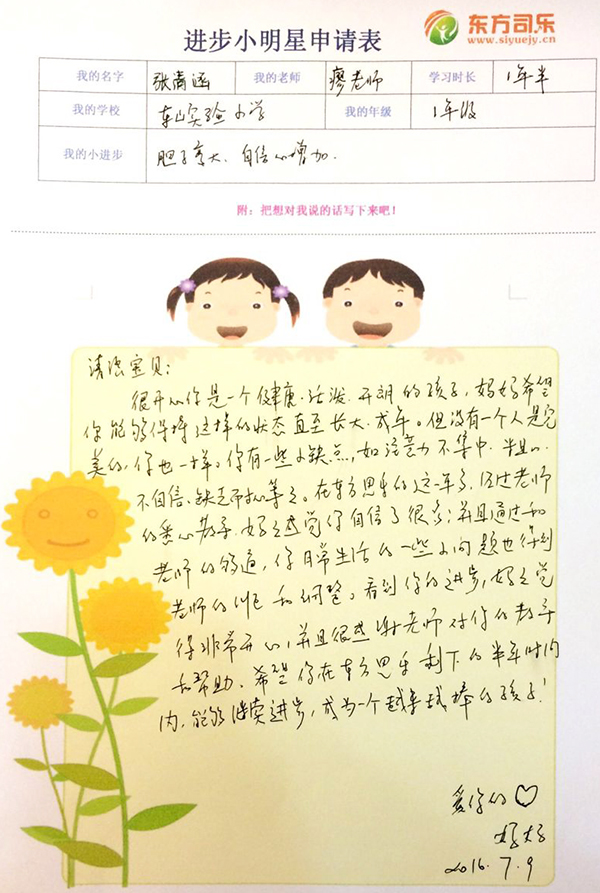 东方司乐
www.siyuejy.cn
进步小明星申请表
我的名字 张清涵 我的老师 廖老师 学习时长 1年半
我的学校 东山实验小学 我的年级 1年级
我的小进步 胆子变大、自信心增加.
附:把想对我说的话写下来吧!
清涵宝贝:
很开心你是一个健康.活泼.开朗的孩子,妈妈希望
你能够保持这样的状态直至长大.成年。但没有一个人是完
美的,你也一样。你有一些小缺点,如注意力不集中.
不自信.缺乏耐心等等。在东方思乐的这一年多,经过老师
的悉心教导.妈々感觉你自信了很多;并且通过和
老师的沟通,你日常生活的一些小问题也得到
老师的和调整。看到你的进步,妈々觉
得非常开心,并且很感谢老师对你的教导
和帮助。希望你在东方思乐剩下的半年时间
内,能够继续进步,成为一个越来越棒的孩子!
爱你的♡
妈妈
2016.7.9